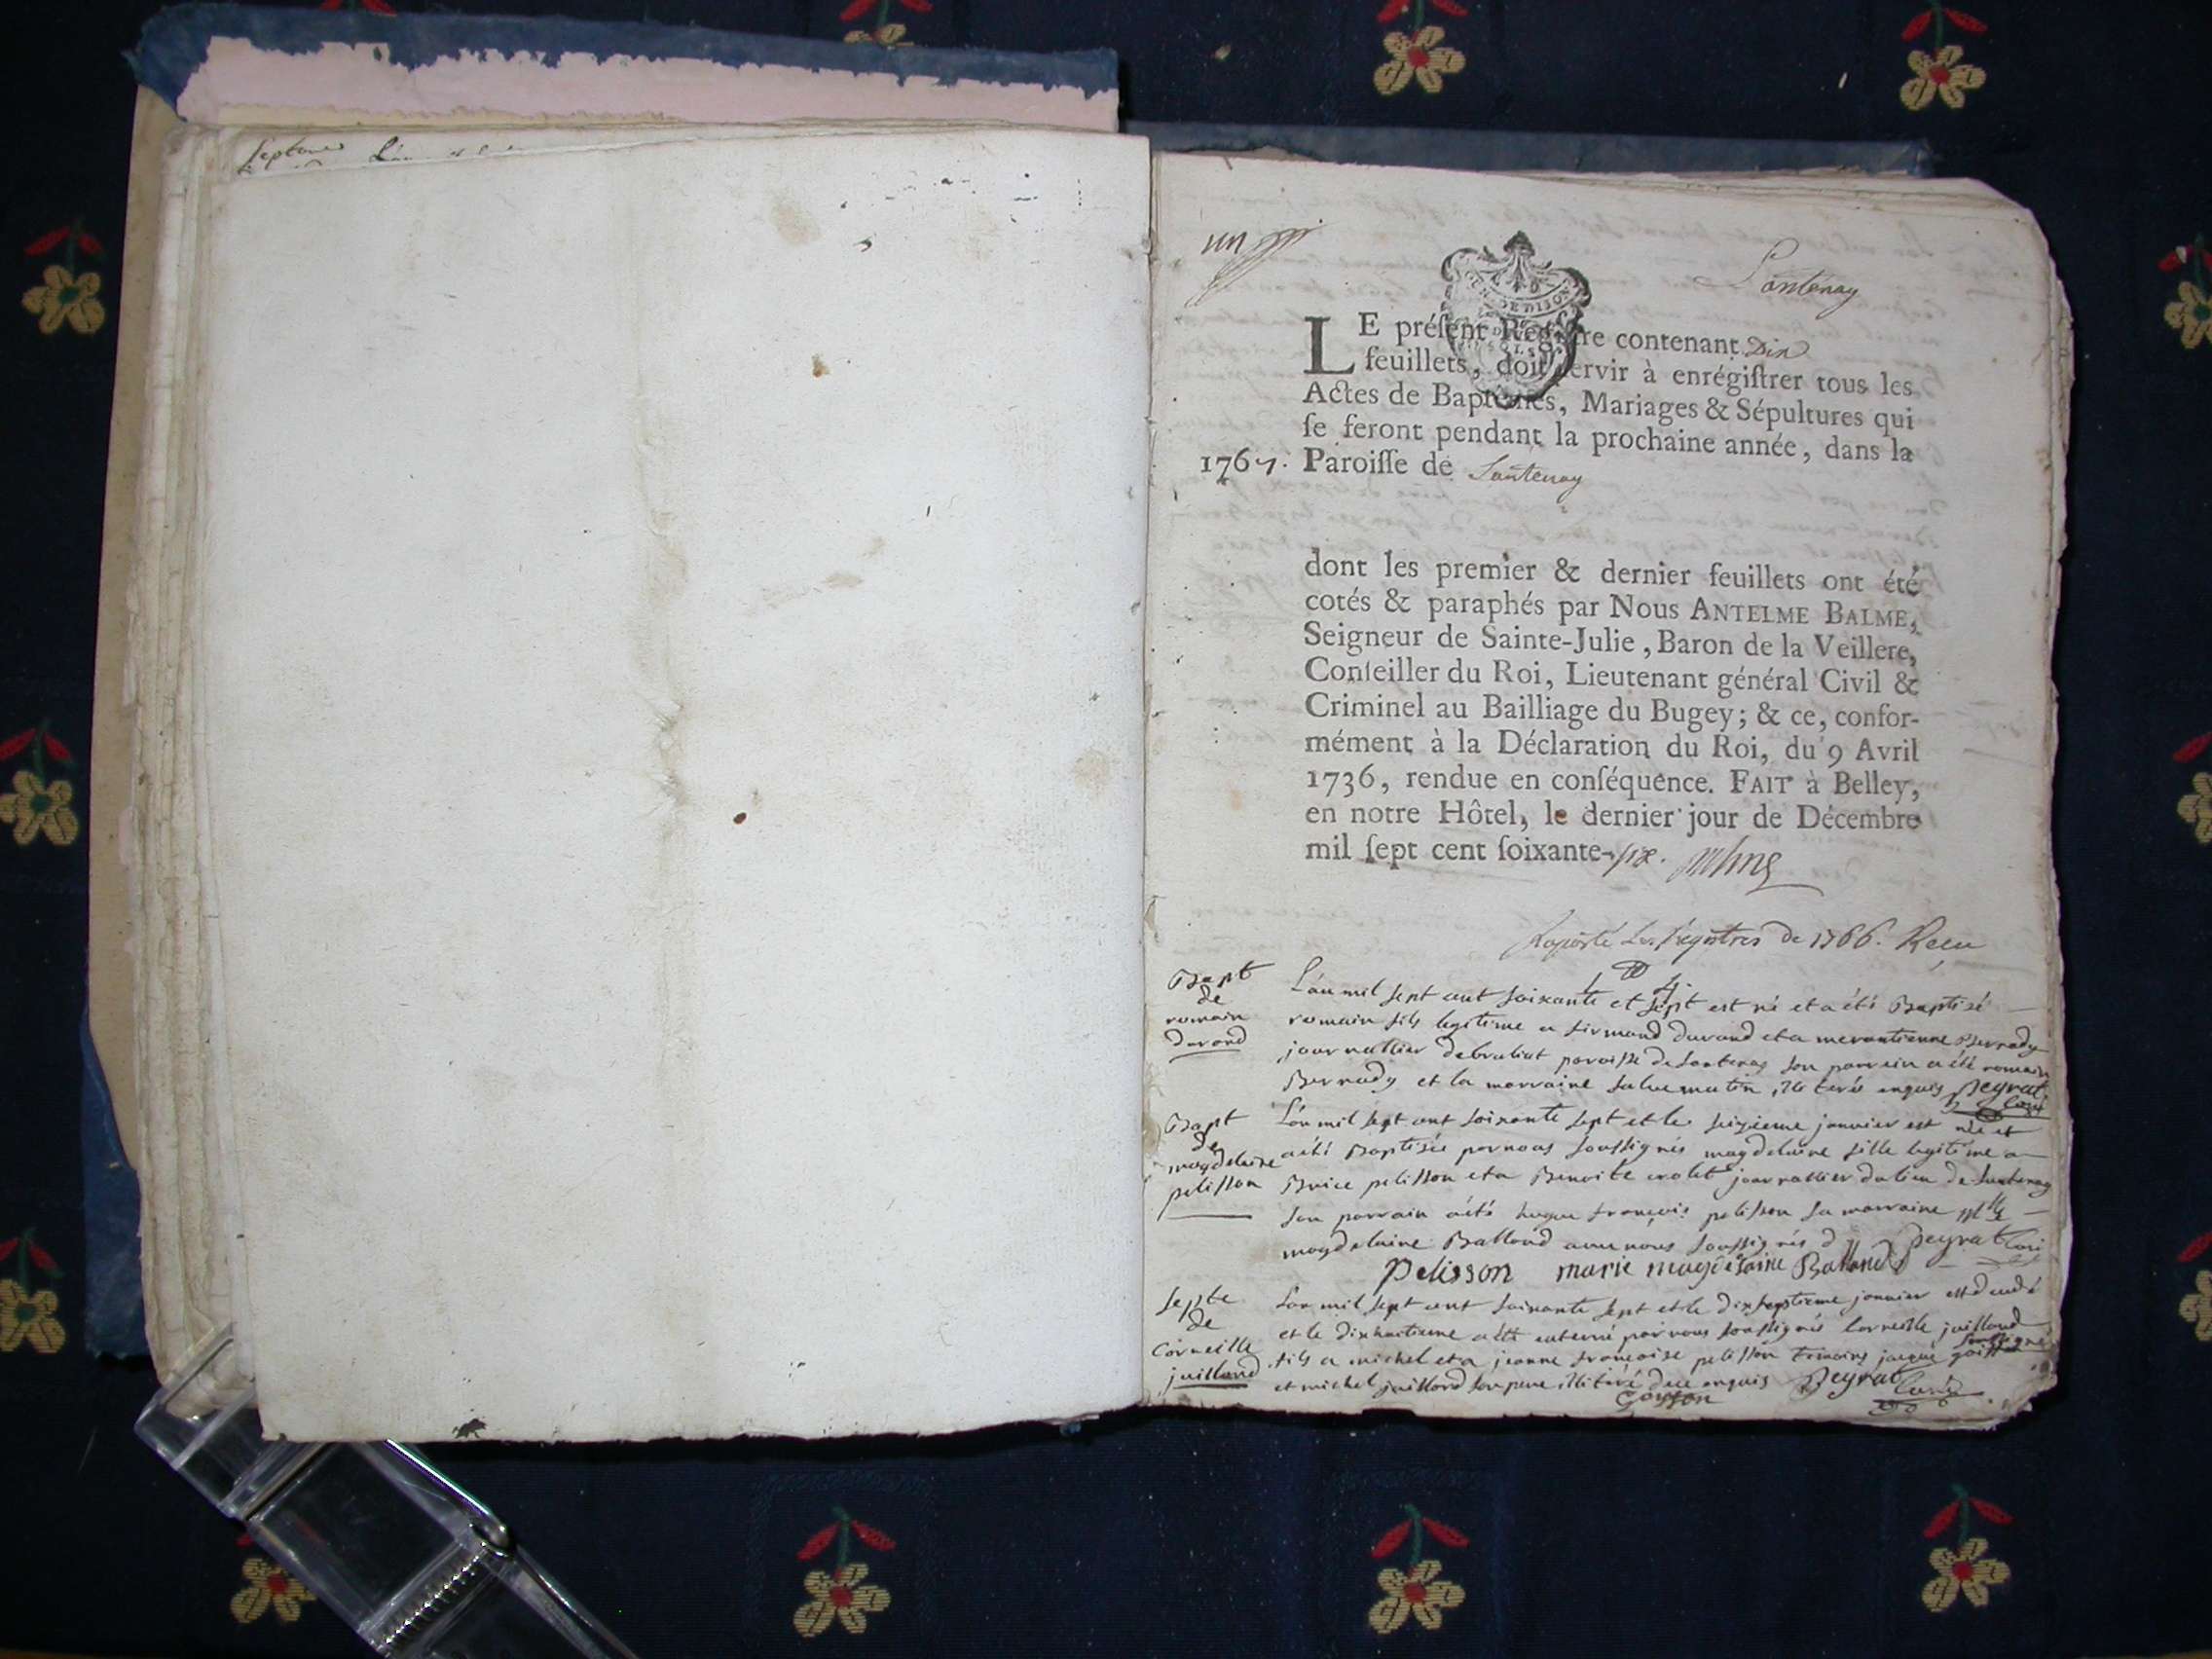 Septure
un
Lantenay
GEN. DE DIJON
LE préſent Regiſtre contenant Dix
feuillets, doit ſervir à enrégiſtrer tous les
Actes de Baptêmes, Mariages & Sépultures qui
ſe feront pendant la prochaine année, dans la
1767. Paroiſſe de Lantenay
dont les premier & dernier feuillets ont été
cotés & paraphés par Nous ANTELME BALME,
Seigneur de Sainte-Julie, Baron de la Veillere,
Conſeiller du Roi, Lieutenant général Civil &
Criminel au Bailliage du Bugey; & ce, confor-
mément à la Déclaration du Roi, du 9 Avril
1736, rendue en conſéquence. FAIT à Belley,
en notre Hôtel, le dernier jour de Décembre
mil ſept cent ſoixante-six.
Raporté Les registres de 1766. Receu
Bapt
de
romain
durand
L'an mil sept cent soixante et sept est né et a été Baptisé
romain fils legitime a firmand durand et a Bernady
journallier paroisse de Lantenay son parrein a été romain
Bernady et la marraine enquis Peyrat
Curé
Bapt
de
magdelaine
pelisson
L'an mil sept cent soixante sept et le seizieme janvier est née et
a été Baptisée par nous soussignés magdelaine fille legitime a
Brice pelisson et a Benoite crolet journallier du lieu de Lantenay
son parrain a été hugue françois pelisson sa marraine Mlle
magdelaine Balland avec nous soussignés Peyrat Curé
Pelisson marie magdelaine Balland
Septe
de
Corneille
juilland
L'an mil sept cent soixante sept et le dixseptieme janvier est decedé
et le dixhuitieme a été enterré par nous soussignés Corneille juilland
fils a michel et a jeanne françoise pelisson temoins jacque goisson soussigné
et michel juilland son pere illiteré enquis Peyrat Curé
Goisson